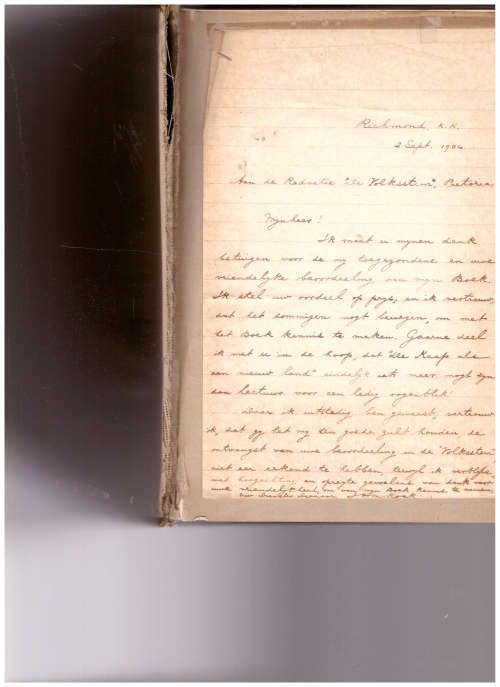 Richmond, K.K.
2 Sept. 1904.
Aan de Redactie "De Volksstem", Pretoria,
Mynheer!
Ik moet u mynen dank
betuigen voor de my toegezondene en uwe
vriendelyke beoordeeling van myn Boek.
Ik stel uw oordeel op prys, en ik vertrouw
dat het sommigen mogt bewegen, om met
het Boek kennis te maken. Gaarne deel
ik met u in de hoop, dat "De Kaap als
een nieuw land" eindelyk iets meer mogt zyn
dan lectuur voor een ledig oogenblik!
Daar ik uitstedig ben geweest, vertrouw
ik, dat gy het my ten goede zult houden, de
ontvangst van uwe beoordeeling in de "Volksstem"
niet eer erkend te hebben, terwyl ik verblyf,
met hoogachting en opregte van dank voor
uwe om van myn Boek kennis te nemen
Uw Dienaar